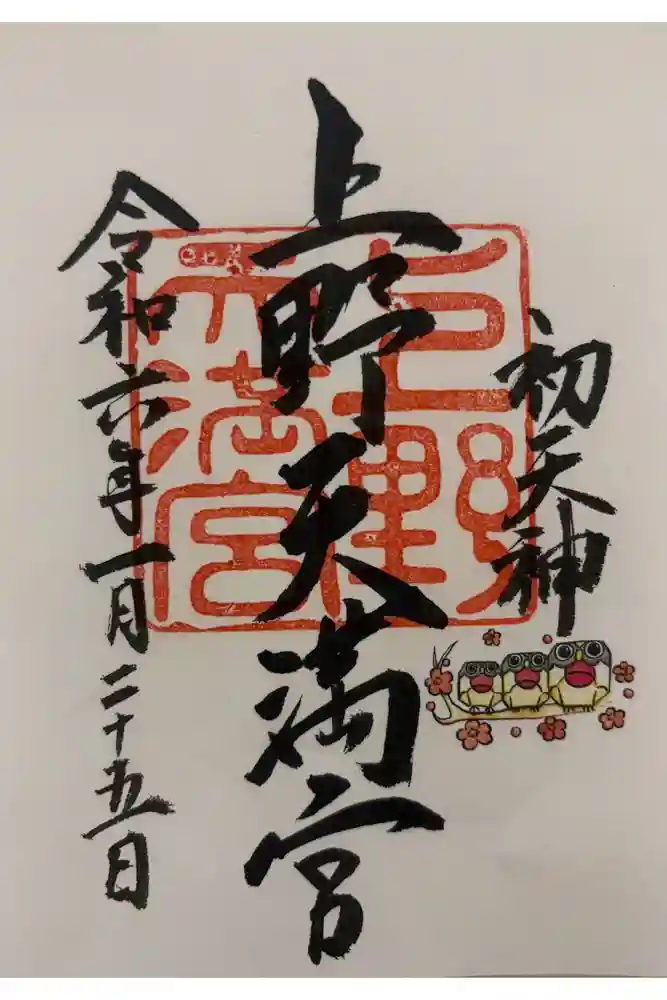 初天神
上野天満宮
上野
天満宮
令和六年一月二十五日